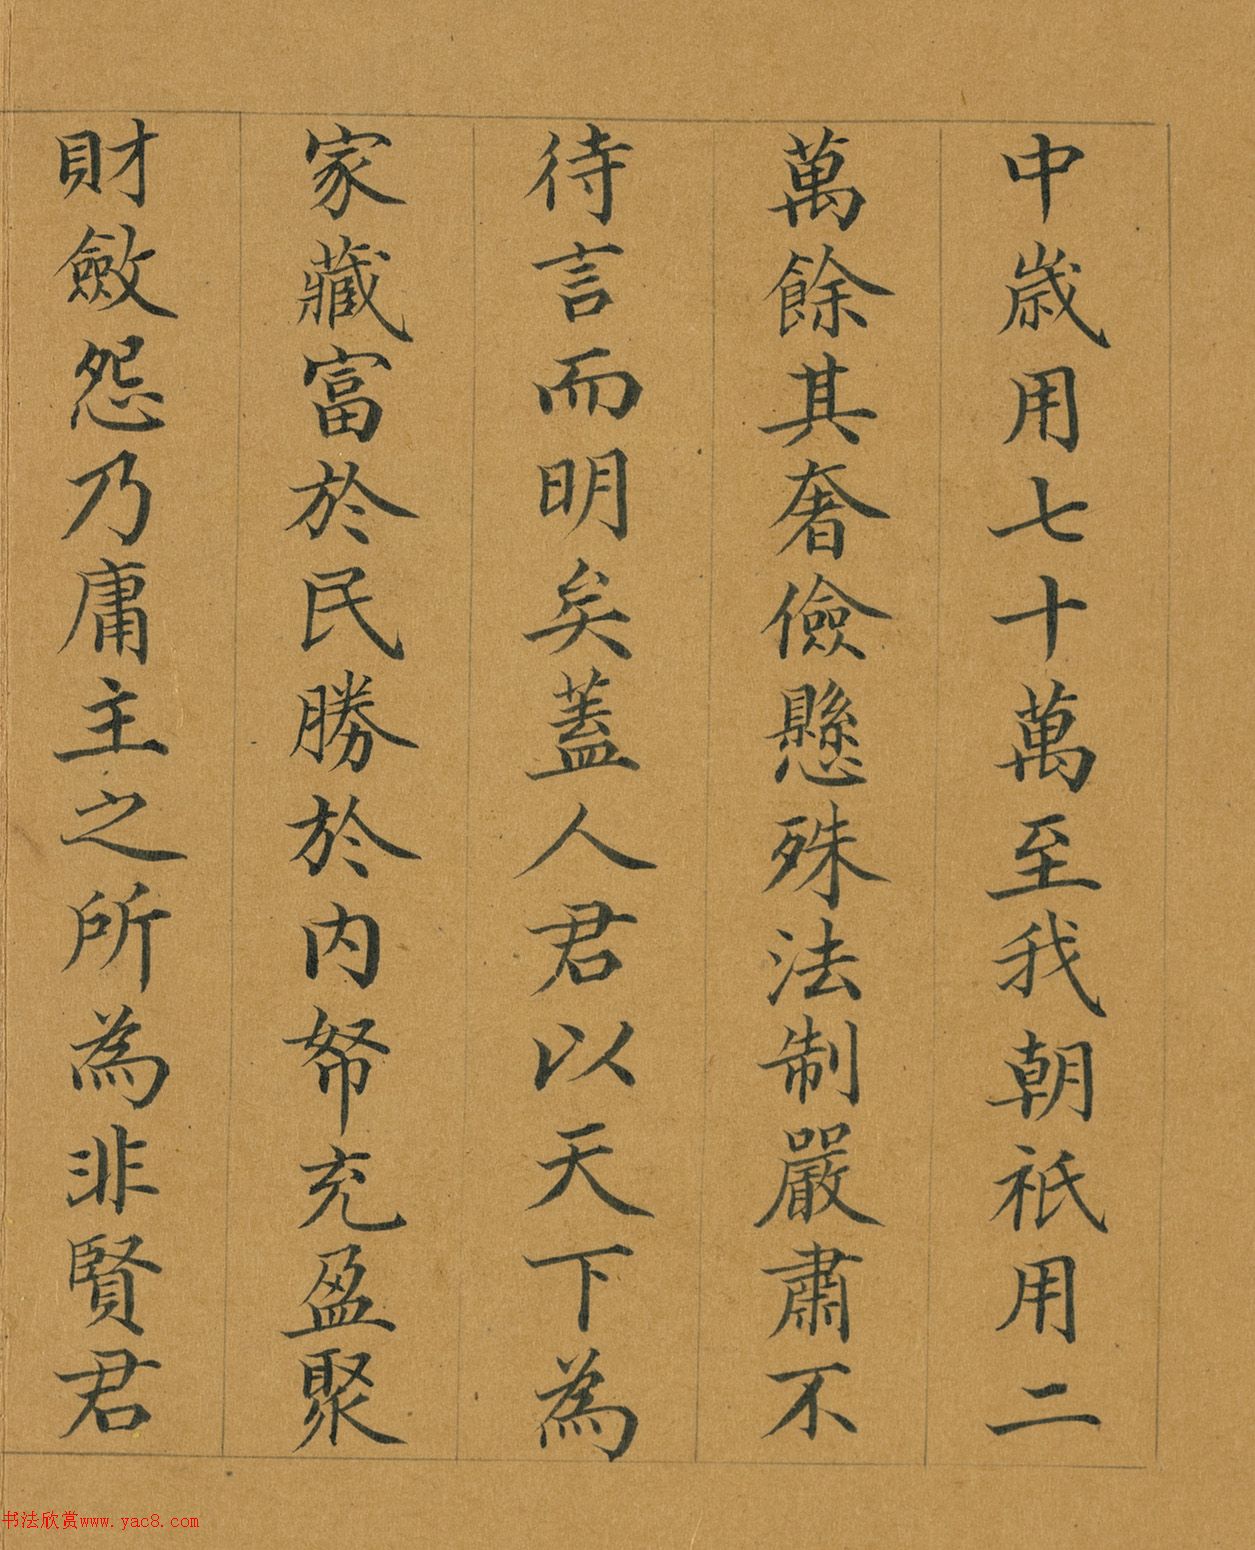 中歳用七十萬至我朝祇用二
萬餘其奢儉懸殊法制嚴肅不
待言而明矣蓋人君以天下為
家藏富於民勝於內帑充盈聚
財斂怨乃庸主之所為非賢君
书法欣赏www.yac8.com